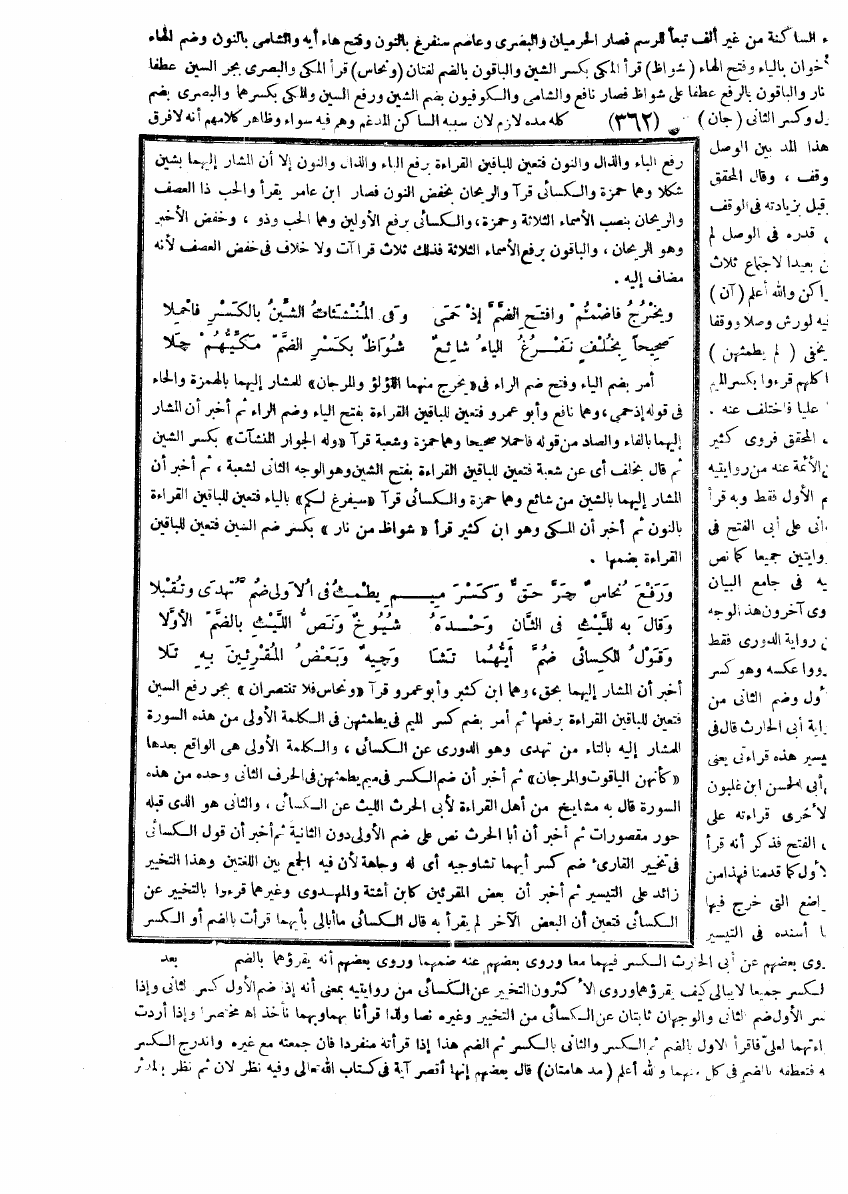 ء الساكنة من غير ألف تبعاً للرسم فصار الحرميان والبصرى وعاصم سنفرغ بالنون وفتح هاء أيه والشامى بالنون وضم الهاء
أخوان بالياء وفتح الهاء (شواظ) قرأ المكى بكسر الشين والباقون بالضم لغتان (ونحاس) قرأ المكى والبصرى بجر السين عطفا
نار والباقون بالرفع عطفا على شواظ فصار نافع والشامى والكوفيون بضم الشين ورفع السين والمكى بكسرها والبصرى بضم
ل وكسر الثانى (جان) (٣٦٢) كله مده لازم لان سببه الساكن المدغم وهم فيه سواء وظاهر كلامهم أنه لافرق
هذا المد بين الوصل
وقف ، وقال المحقق
قيل بزيادته فى الوقف
، قدره فى الوصل لم
ن بعيدا لاجتماع ثلاث
راكن والله أعلم (آن)
فيه لورش وصلا ووقفا
يخفى (لم يطمثهن)
ا كلهم قرءوا بكسر الميم
عليا فاختلف عنه .
، المحقق فروى كثير
ن الأئمة عنه من روايتيه
م الأول فقط وبه قرأ
انى على أبى الفتح فى
وايتين جميعا كما نص
يه فى جامع البيان
وى آخرون هذا الوجه
ن رواية الدورى فقط
ووا عكسه وهو كسر
أول وضم الثانى من
واية أبى الحارث قال فى
يسير هذه قراءتى يعنى
أبى الحسن ابن غلبون
لأخرى قراءته على
، الفتح فذكر أنه قرأ
لأول كما قدمنا فهذا من
واضع التى خرج فيها
ا أسنده فى التيسير
رفع الباء والذال والنون فتعين للباقين القراءة برفع الباء والذال والنون إلا أن المشار إليهما بشين
شكلا وهما حمزة والكسائى قرآ والريحان بخفض النون فصار ابن عامر يقرأ والحب ذا العصف
والريحان بنصب الأسماء الثلاثة وحمزة، والكسائى برفع الأولين وهما الحب وذو ، وخفض الأخير
وهو الريحان ، والباقون برفع الأسماء الثلاثة فذلك ثلاث قراآت ولا خلاف فى خفض العصف لأنه
مضاف إليه .
وَيَخْرُجُ فَاضْمُمْ وَافْتَحِ الضَّمَّ إِذْ حَمَى وَفى الْمُنْشَئَاتُ الشِّينُ بِالْكَسْرِ فَاحْمِلَا
صَحِيحاً بِخُلْفٍ نَفْرُغُ الْيَاءُ شَائِعٌ شُوَاظٌ بِكَسْرِ الضَّمِّ مَكِّيُّهُمْ جَلَا
أمر بضم الياء وفتح ضم الراء فى «يخرج منهما اللؤلؤ والمرجان» للمشار إليهما بالهمزة والحاء
فى قوله إذ حمى، وهما نافع وأبو عمرو فتعين للباقين القراءة بفتح الياء وضم الراء ثم أخبر أن المشار
إليهما بالفاء والصاد من قوله فاحملا صحيحا وهما حمزة وشعبة قرآ «وله الجوار المنشآت» بكسر الشين
ثم قال بخلف أى عن شعبة فتعين للباقين القراءة بفتح الشين وهو الوجه الثانى لشعبة ، ثم أخبر أن
المشار إليهما بالشين من شائع وهما حمزة والكسائى قرآ «سيفرغ لكم» بالياء فتعين للباقين القراءة
بالنون ثم أخبر أن المكى وهو ابن كثير قرأ «شواظ من نار» بكسر ضم الشين فتعين للباقين
القراءة بضمها .
وَرَفْعَ نُحَاسٌ جَرَّ حَقٌّ وَكَسْرَ مِيمِ يَطْمِثْ فى الْأُولَى ضُمَّ تُهْدَى وَتُقْبَلَا
وَقَالَ بِهِ لِلَّيْثِ فى الثَّانِ وَحْدَهُ شُيُوخٌ وَنَصُّ اللَّيْثِ بِالضَّمِّ الْأَوَّلَا
وَقَوْلُ الْكِسَائى ضُمَّ أَيُّهُمَا تَشَا وَجِيهٌ وَبَعْضُ الْمُقْرِئِينَ بِهِ تَلَا
أخبر أن المشار إليهما بحق، وهما ابن كثير وأبو عمرو قرآ «ونحاس فلا تنتصران» بجر رفع السين
فتعين للباقين القراءة برفعها ثم أمر بضم كسر الميم فى يطمثهن فى الكلمة الأولى من هذه السورة
المشار إليه بالتاء من تهدى وهو الدورى عن الكسائى ، والكلمة الأولى هى الواقع بعدها
«كأنهن الياقوت والمرجان» ثم أخبر أن ضم الكسر فى ميم يطمثهن فى الحرف الثانى وحده من هذه
السورة قال به مشايخ من أهل القراءة لأبى الحرث الليث عن الكسائى ، والثانى هو الذى قبله
حور مقصورات ثم أخبر أن أبا الحرث نص على ضم الأولى دون الثانية ثم أخبر أن قول الكسائى
فى تخيير القارئ ضم كسر أيهما تشا وجيه أى له وجاهة لأن فيه الجمع بين اللغتين وهذا التخيير
زائد على التيسير ثم أخبر أن بعض المقرئين كابن أشتة والمهدوى وغيرهما قرءوا بالتخيير عن
الكسائى فتعين أن البعض الآخر لم يقرأ به قال الكسائى ما أبالى بأيهما قرأت بالضم أو الكسر
وى بعضهم عن أبى الحارث الكسر فيهما معا وروى بعضهم عنه ضمهما وروى بعضهم أنه يقرؤهما بالضم بعد
لكسر جميعا لا يبالى كيف يقرؤهما وروى الأكثرون التخيير عن الكسائى من روايتيه بمعنى أنه إذا ضم الأول كسر الثانى وإذا
سر الأول ضم الثانى والوجهان ثابتان عن الكسائى من التخيير وغيره نصا وأداء قرأنا بهما وبهما نأخذ اه مختصرا وإذا أردت
اءتهما لعلى فاقرأ الاول بالضم ثم الكسر والثانى بالكسر ثم الضم هذا إذا قرأته منفردا فان جمعته مع غيره واندرج الكسر
ه فتعطفه بالضم فى كل منهما والله أعلم (مدهامتان) قال بعضهم إنها أقصر آية فى كتاب الله تعالى وفيه نظر لان ثم نظر بالمدثر